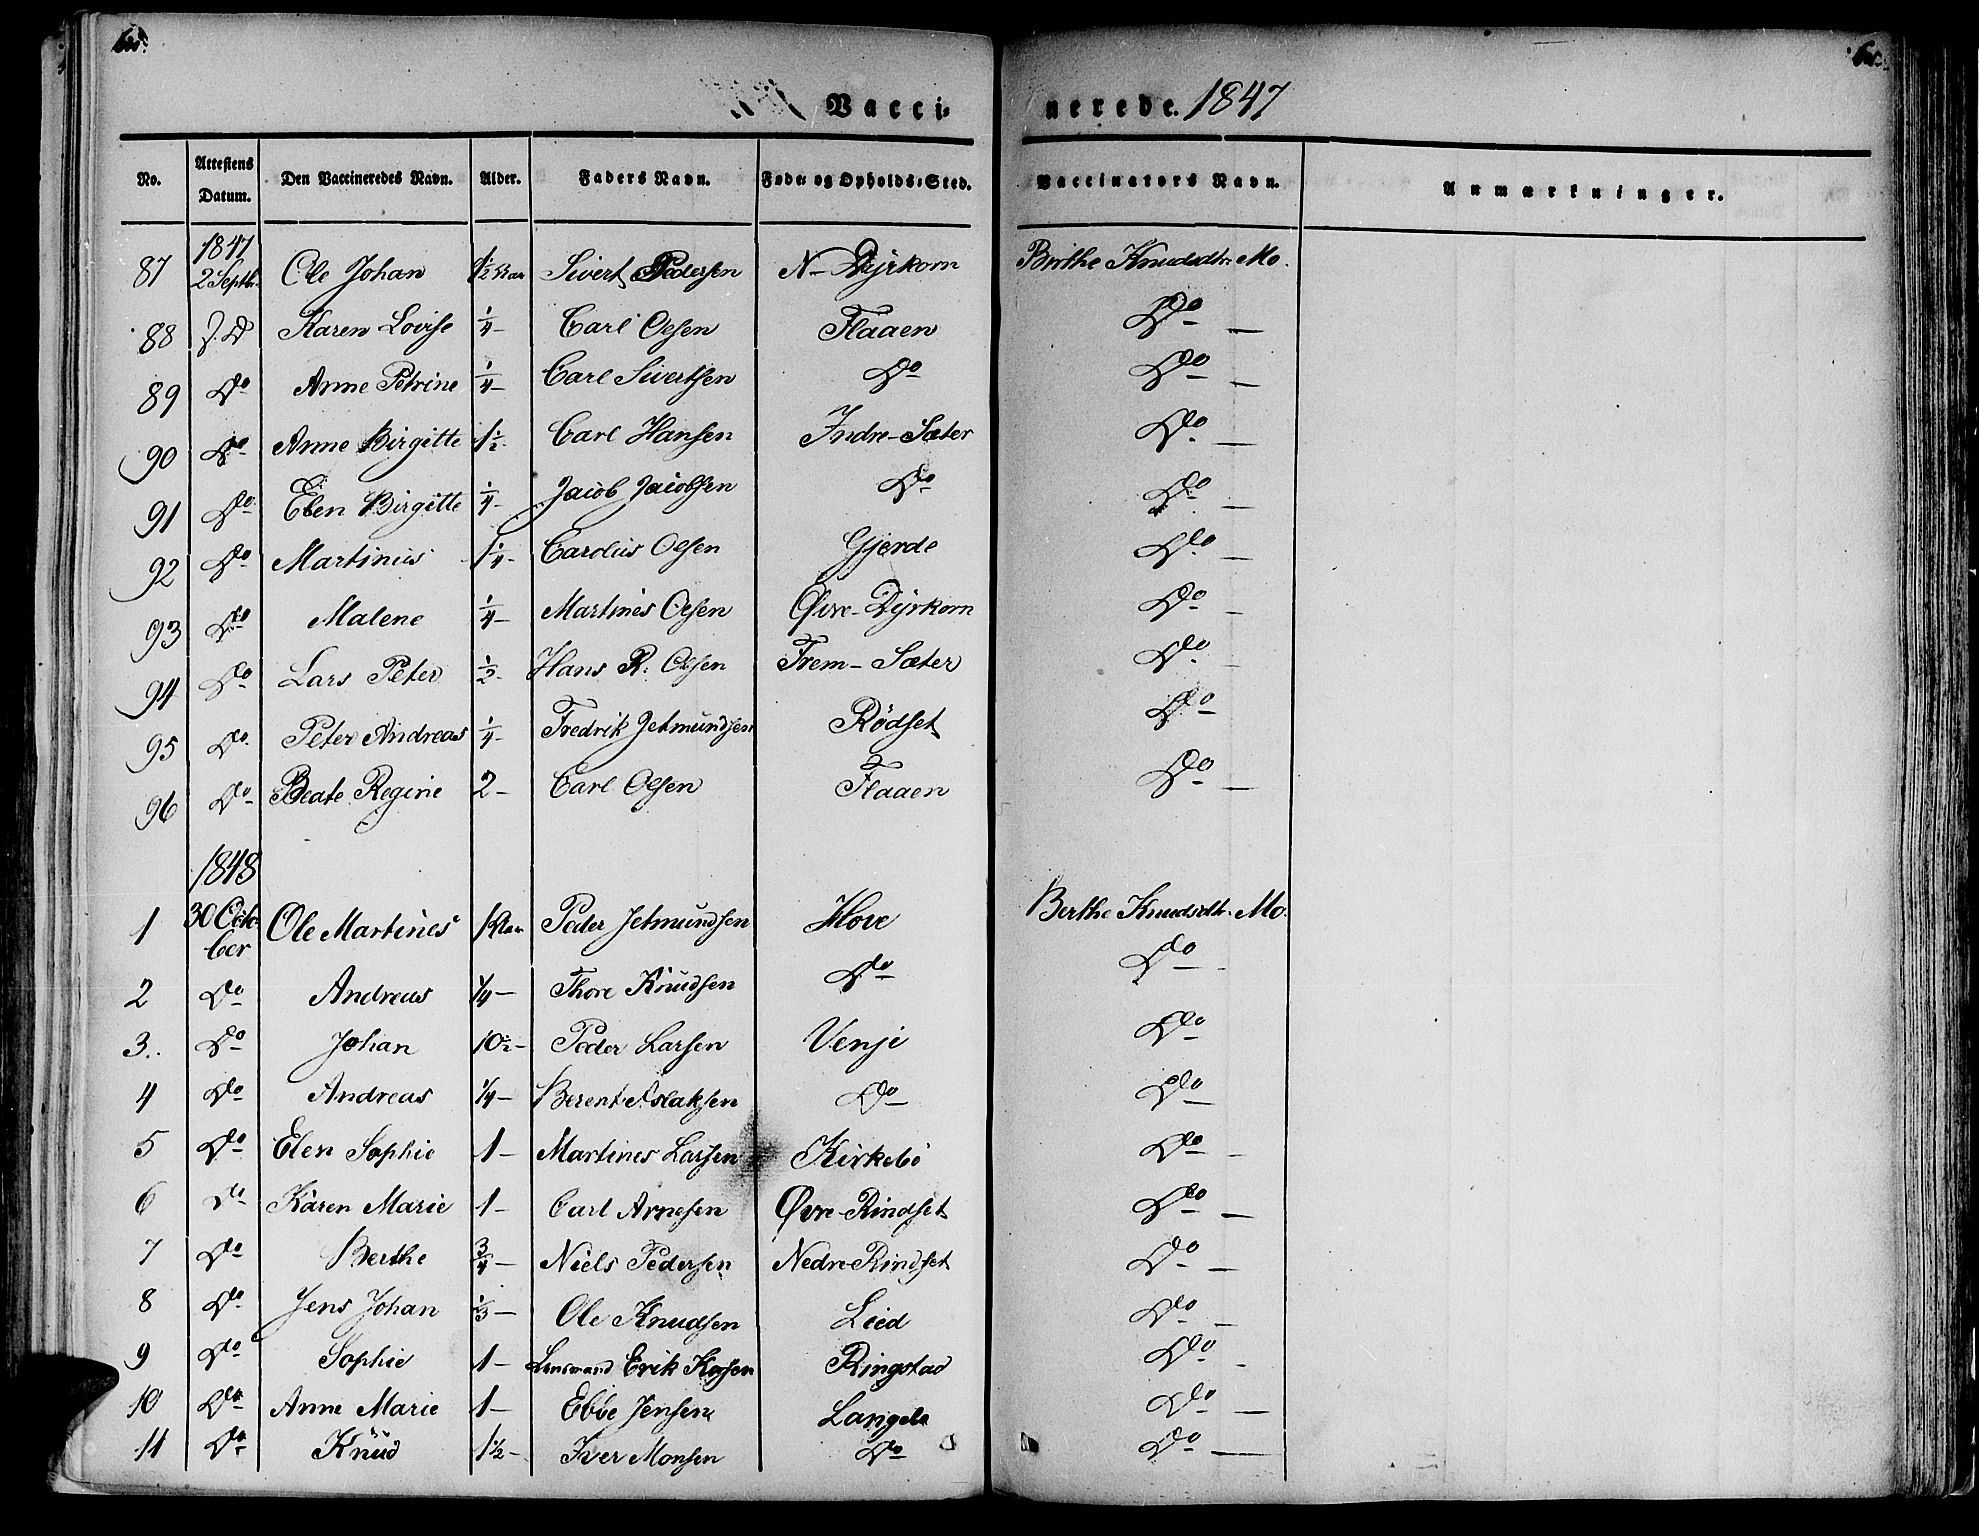 Vaccinerede. 1847
No. Attestens Datum. Den Vaccineredes Navn. Alder. Faders Navn. Føde- og Opholds-Sted. Vaccinators Navn. Anmærkninger.
1847
87 2 Septbr. Ole Johan 1/2 Aar Sivert Pedersen N- Dyrkorn Birthe Knudsdtr. Mo.
88 Karen Lovise 1/4 - Carl Olsen Flaaen Do -
89 Do Anne Petrine 1/4 - Carl Sivertsen Do Do -
90 Do Anne Birgitte 1 1/2 - Carl Hansen Indre-Sæter Do -
91 Do Elen Birgitte 1/4 - Jacob Jacobsen Do Do -
92 Do Martinus 1 1/4 - Carolus Olsen Gjerde Do -
93 Do Malene 1/4 - Martines Olsen Øvre-Dyrkorn Do -
94 Do Lars Peter 1/2 - Hans R. Olsen Frem-Sæter Do -
95 Do Peter Andreas 1/4 - Fredrik Jetmundsen Rødset Do
96 Do Beate Regine 2 - Carl Olsen Flaaen Do -
1848
1 30 October Ole Martines 1 Aar Peder Jetmundsen Hove Berthe Knudsdtr. Mo.
2 Do Andreas 1/4 - Thore Knudsen Do Do -
3. Do Johan 10 1/2 - Peder Larsen Venje Do
4 Do Andreas 1/4 - Berent Aslaksen Do Do
5 Do Elen Sophie 1 - Martines Larsen Kirkebø Do -
6 Do Karen Marie 1 - Carl Arnesen Øvre-Rindset Do -
7 Do Berthe 3/4 - Niels Pedersen Nedre-Rindset Do -
8 Do Jens Johan 1/3 - Ole Knudsen Lied Do -
9 Do Sophie 1 - Lensmand Erik Ringstad Do -
10 Do Anne Marie 1 - Ebbe Jensen Langelo Do -
11 Do Knud 1 1/2 - Iver Monsen Do Do -